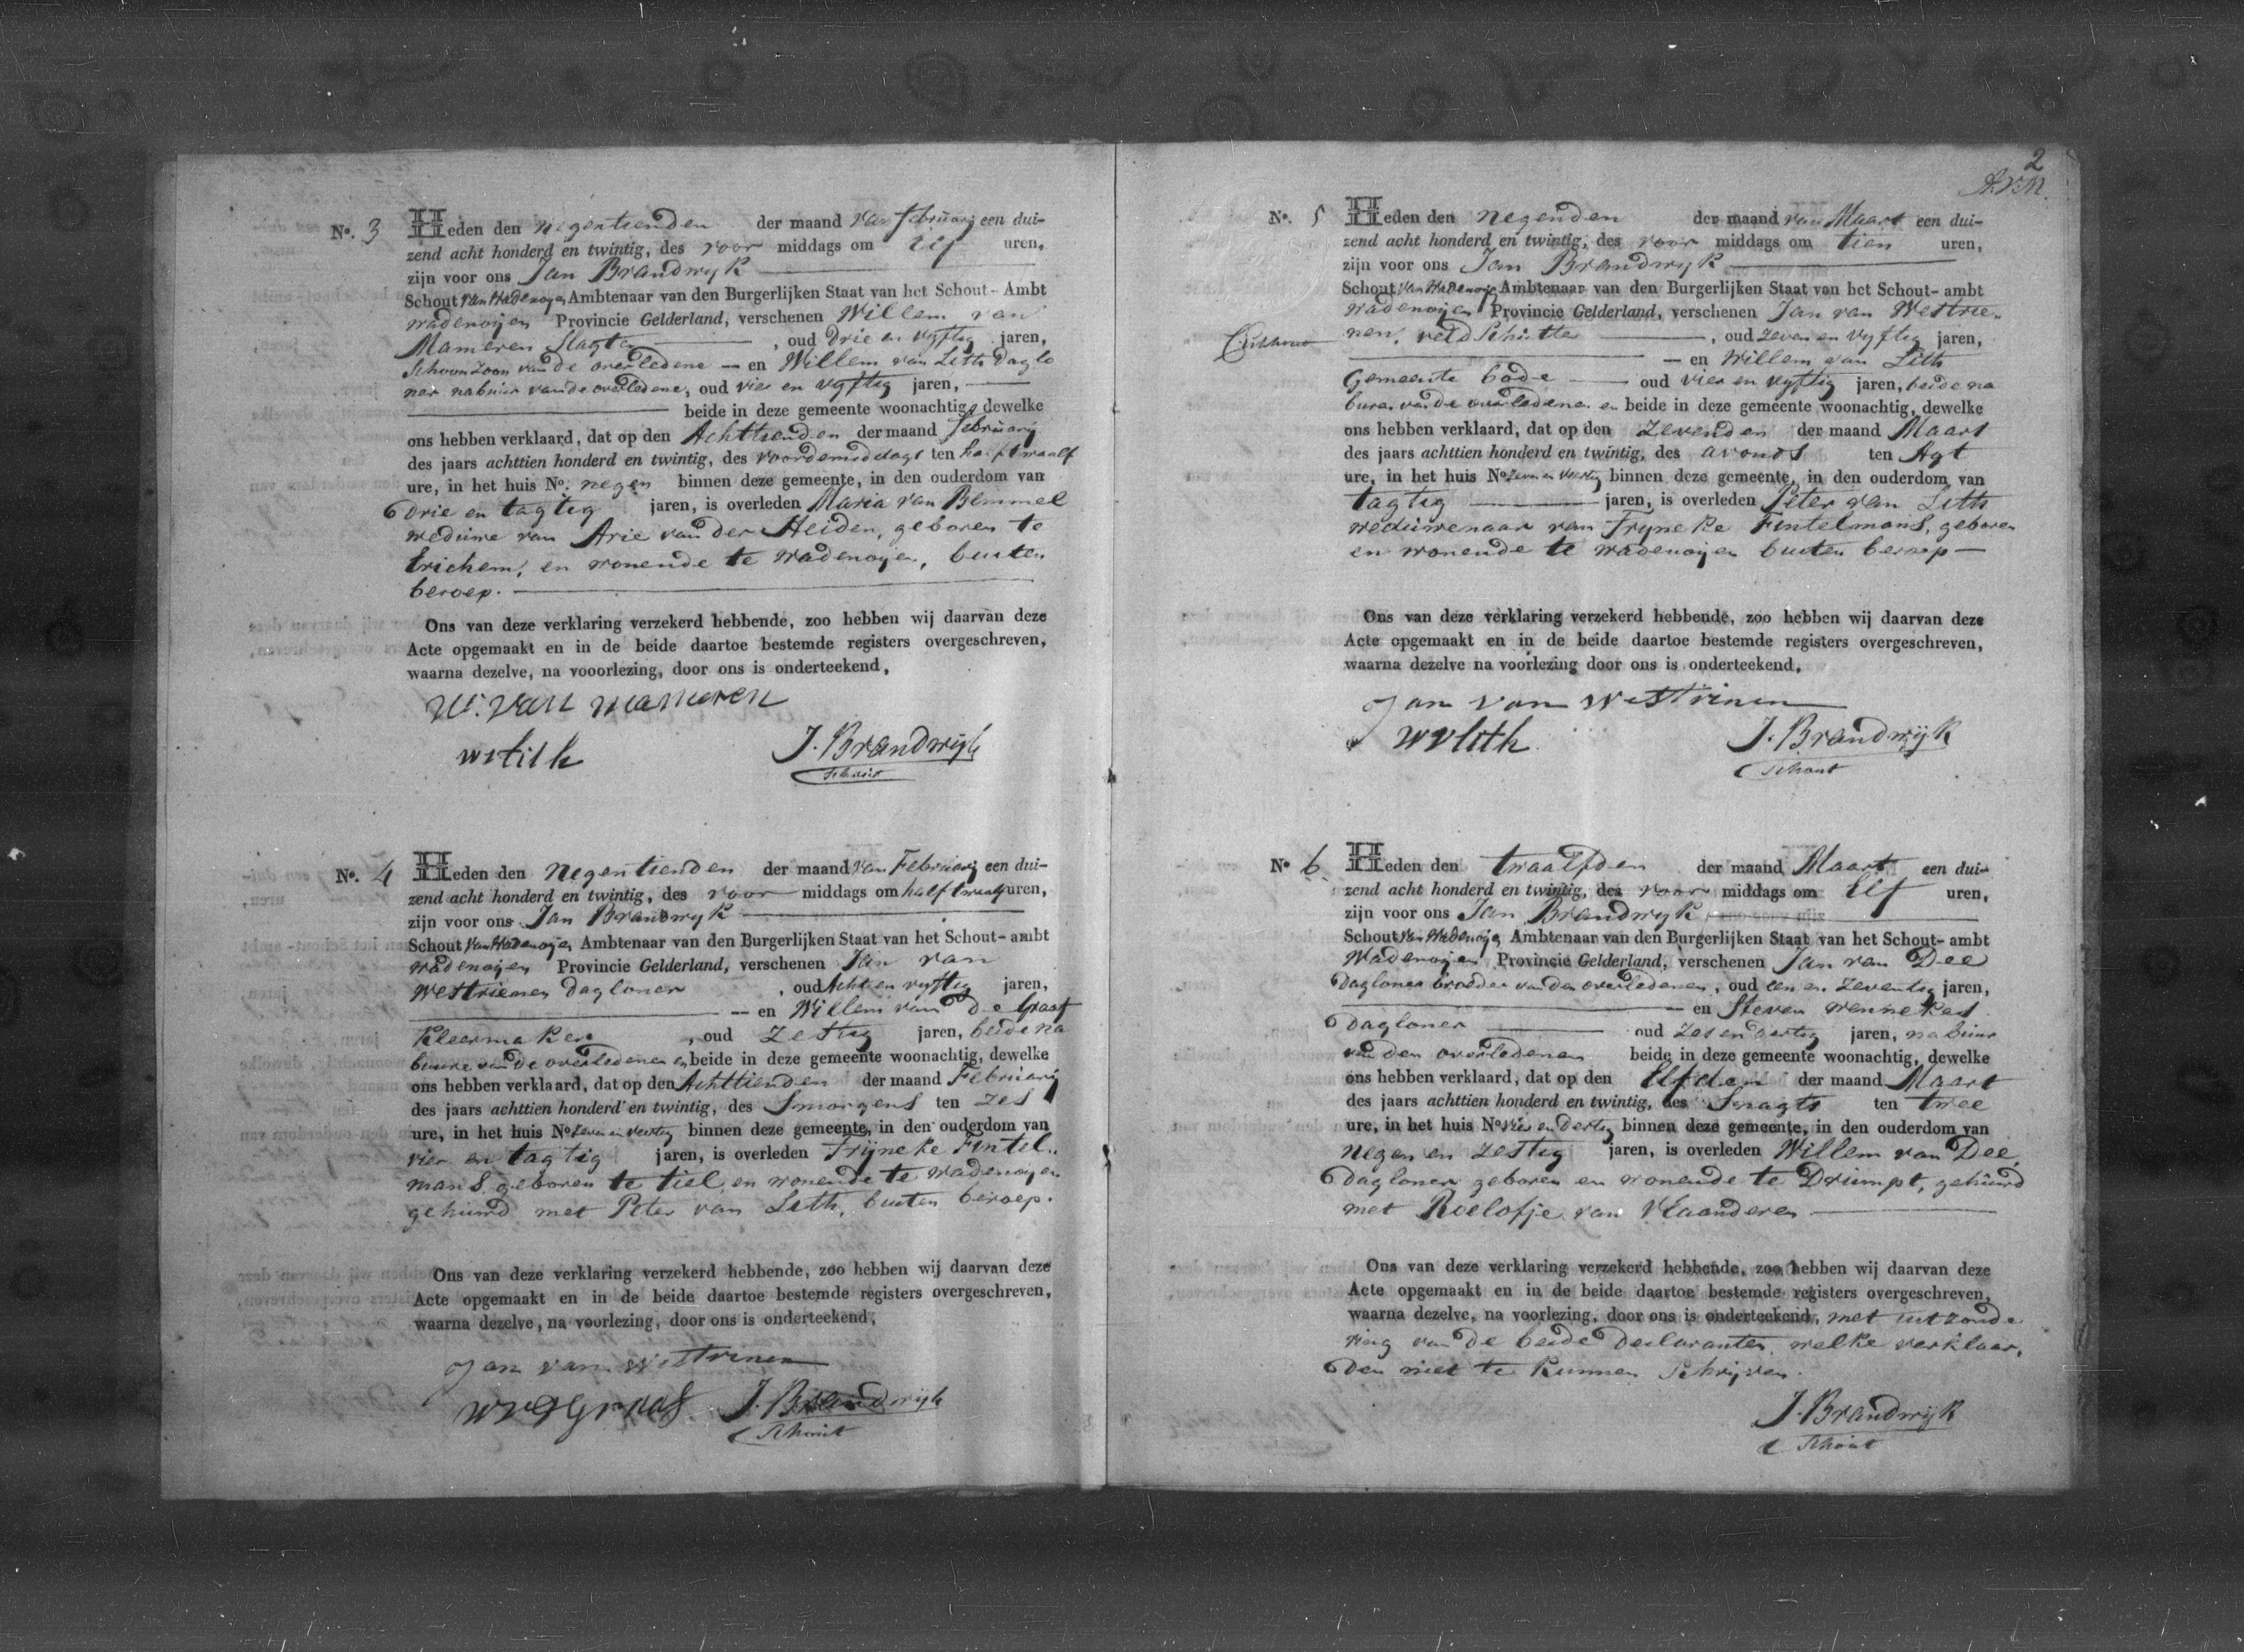 No. 3 Heden den negentienden der maand van februarij een dui-
zend acht honderd en twintig, des voor middags om elf uren,
zijn voor ons Jan Brandwyk
Schout van Wadenoijen Ambtenaar van den Burgerlijken Staat van het Schout-Ambt
wadenoijen Provincie Gelderland, verschenen Willem van
Mameren Slagter, oud drie en vyftig jaren,
Schoonzoon van de overledene — en Willem van Lith Daglo
ner nabuur van de overledene, oud vier en vyftig jaren,
beide in deze gemeente woonachtig, dewelke
ons hebben verklaard, dat op den Achttienden der maand februarij
des jaars achttien honderd en twintig, des voordemiddags ten half twaalf
ure, in het huis No. negen binnen deze gemeente, in den ouderdom van
drie en tagtig jaren, is overleden Maria van Bemmel
weduwe van Arie van der Heiden, geboren te
Erichem, en wonende te wadenoijen, buiten
beroep.
Ons van deze verklaring verzekerd hebbende, zoo hebben wij daarvan deze
Acte opgemaakt en in de beide daartoe bestemde registers overgeschreven,
waarna dezelve, na vooorlezing, door ons is onderteekend,
W. van mameren
J. Brandwijk
Schout
No. 4 Heden den Negentienden der maand van Februarij een dui-
zend acht honderd en twintig, des voor middags om half twaalf uren,
zijn voor ons Jan Brandwyk
Schout van Wadenoijen Ambtenaar van den Burgerlijken Staat van het Schout-ambt
wadenoijen Provincie Gelderland, verschenen Jan van
Westrienen dagloner, oud Acht en vyftig jaren,
— en Willem van De Graaf
Kleermaker, oud Zestig jaren, beide na
buure van de overledenen en beide in deze gemeente woonachtig, dewelke
ons hebben verklaard, dat op den Achttienden der maand Februarij
des jaars achttien honderd en twintig, des Smorgens ten zes
ure, in het huis No zeven en veertig binnen deze gemeente, in den ouderdom van
vier en tagtig jaren, is overleden Tryneke Fintel..
mans, geboren te tiel, en wonende te wadenoijen
gehuwd met Peter van Lith, buiten beroep.
Ons van deze verklaring verzekerd hebbende, zoo hebben wij daarvan deze
Acte opgemaakt en in de beide daartoe bestemde registers overgeschreven,
waarna dezelve, na voorlezing, door ons is onderteekend,
Jan van Westrinen
J. Brandwijk
Schout
2
No. 5 Heden den Negenden der maand van Maart een dui-
zend acht honderd en twintig, des voor middags om tien uren,
zijn voor ons Jan Brandwyk
Schout van Wadenoije Ambtenaar van den Burgerlijken Staat van het Schout-ambt
wadenoijen Provincie Gelderland, verschenen Jan van Westrie..
nen, veldschutter, oud zeven en vyftig jaren,
— en Willem van Lith
Gemeente bode oud vier en vyftig jaren, beide na
buren van de overledenen en beide in deze gemeente woonachtig, dewelke
ons hebben verklaard, dat op den Zevenden der maand Maart
des jaars achttien honderd en twintig, des avonds ten Agt
ure, in het huis No zeven en veertig binnen deze gemeente, in den ouderdom van
tagtig jaren, is overleden Peter van Lith
weduwenaar van Tryneke Fintelmans, geboren
en wonende te wadenoijen buiten beroep —
Ons van deze verklaring verzekerd hebbende, zoo hebben wij daarvan deze
Acte opgemaakt en in de beide daartoe bestemde registers overgeschreven,
waarna dezelve na voorlezing door ons is onderteekend,
Jan van Westrinen
wvlith
J. Brandwijk
Schout
No 6. Heden den twaalfden der maand Maart een dui-
zend acht honderd en twintig, des voor middags om Elf uren,
zijn voor ons Jan Brandwyk
Schout van Wadenoije Ambtenaar van den Burgerlijken Staat van het Schout-ambt
Wadenoijen Provincie Gelderland, verschenen Jan van Dee
Dagloner broeder van den overledenen, oud een en zeventig jaren,
— en Steven wennekes
Dagloner oud zes en dertig jaren, nabuur
van den overledenen beide in deze gemeente woonachtig, dewelke
ons hebben verklaard, dat op den Elfden der maand Maart
des jaars achttien honderd en twintig, des Snagts ten twee
ure, in het huis No vier en dertig binnen deze gemeente, in den ouderdom van
negen en zestig jaren, is overleden Willem van Dee,
dagloner geboren en wonende te Drumpt, gehuwd
met Roelofje van Vlaanderen
Ons van deze verklaring verzekerd hebbende, zoo hebben wij daarvan deze
Acte opgemaakt en in de beide daartoe bestemde registers overgeschreven,
waarna dezelve, na voorlezing, door ons is onderteekend, met uitzonde
ring van de beide Declaranten, welke verklaar,
den niet te kunnen schrijven.
J. Brandwijk
Schout